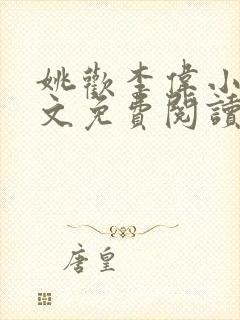 姚歡李偉小
文免費閱讀
唐皇